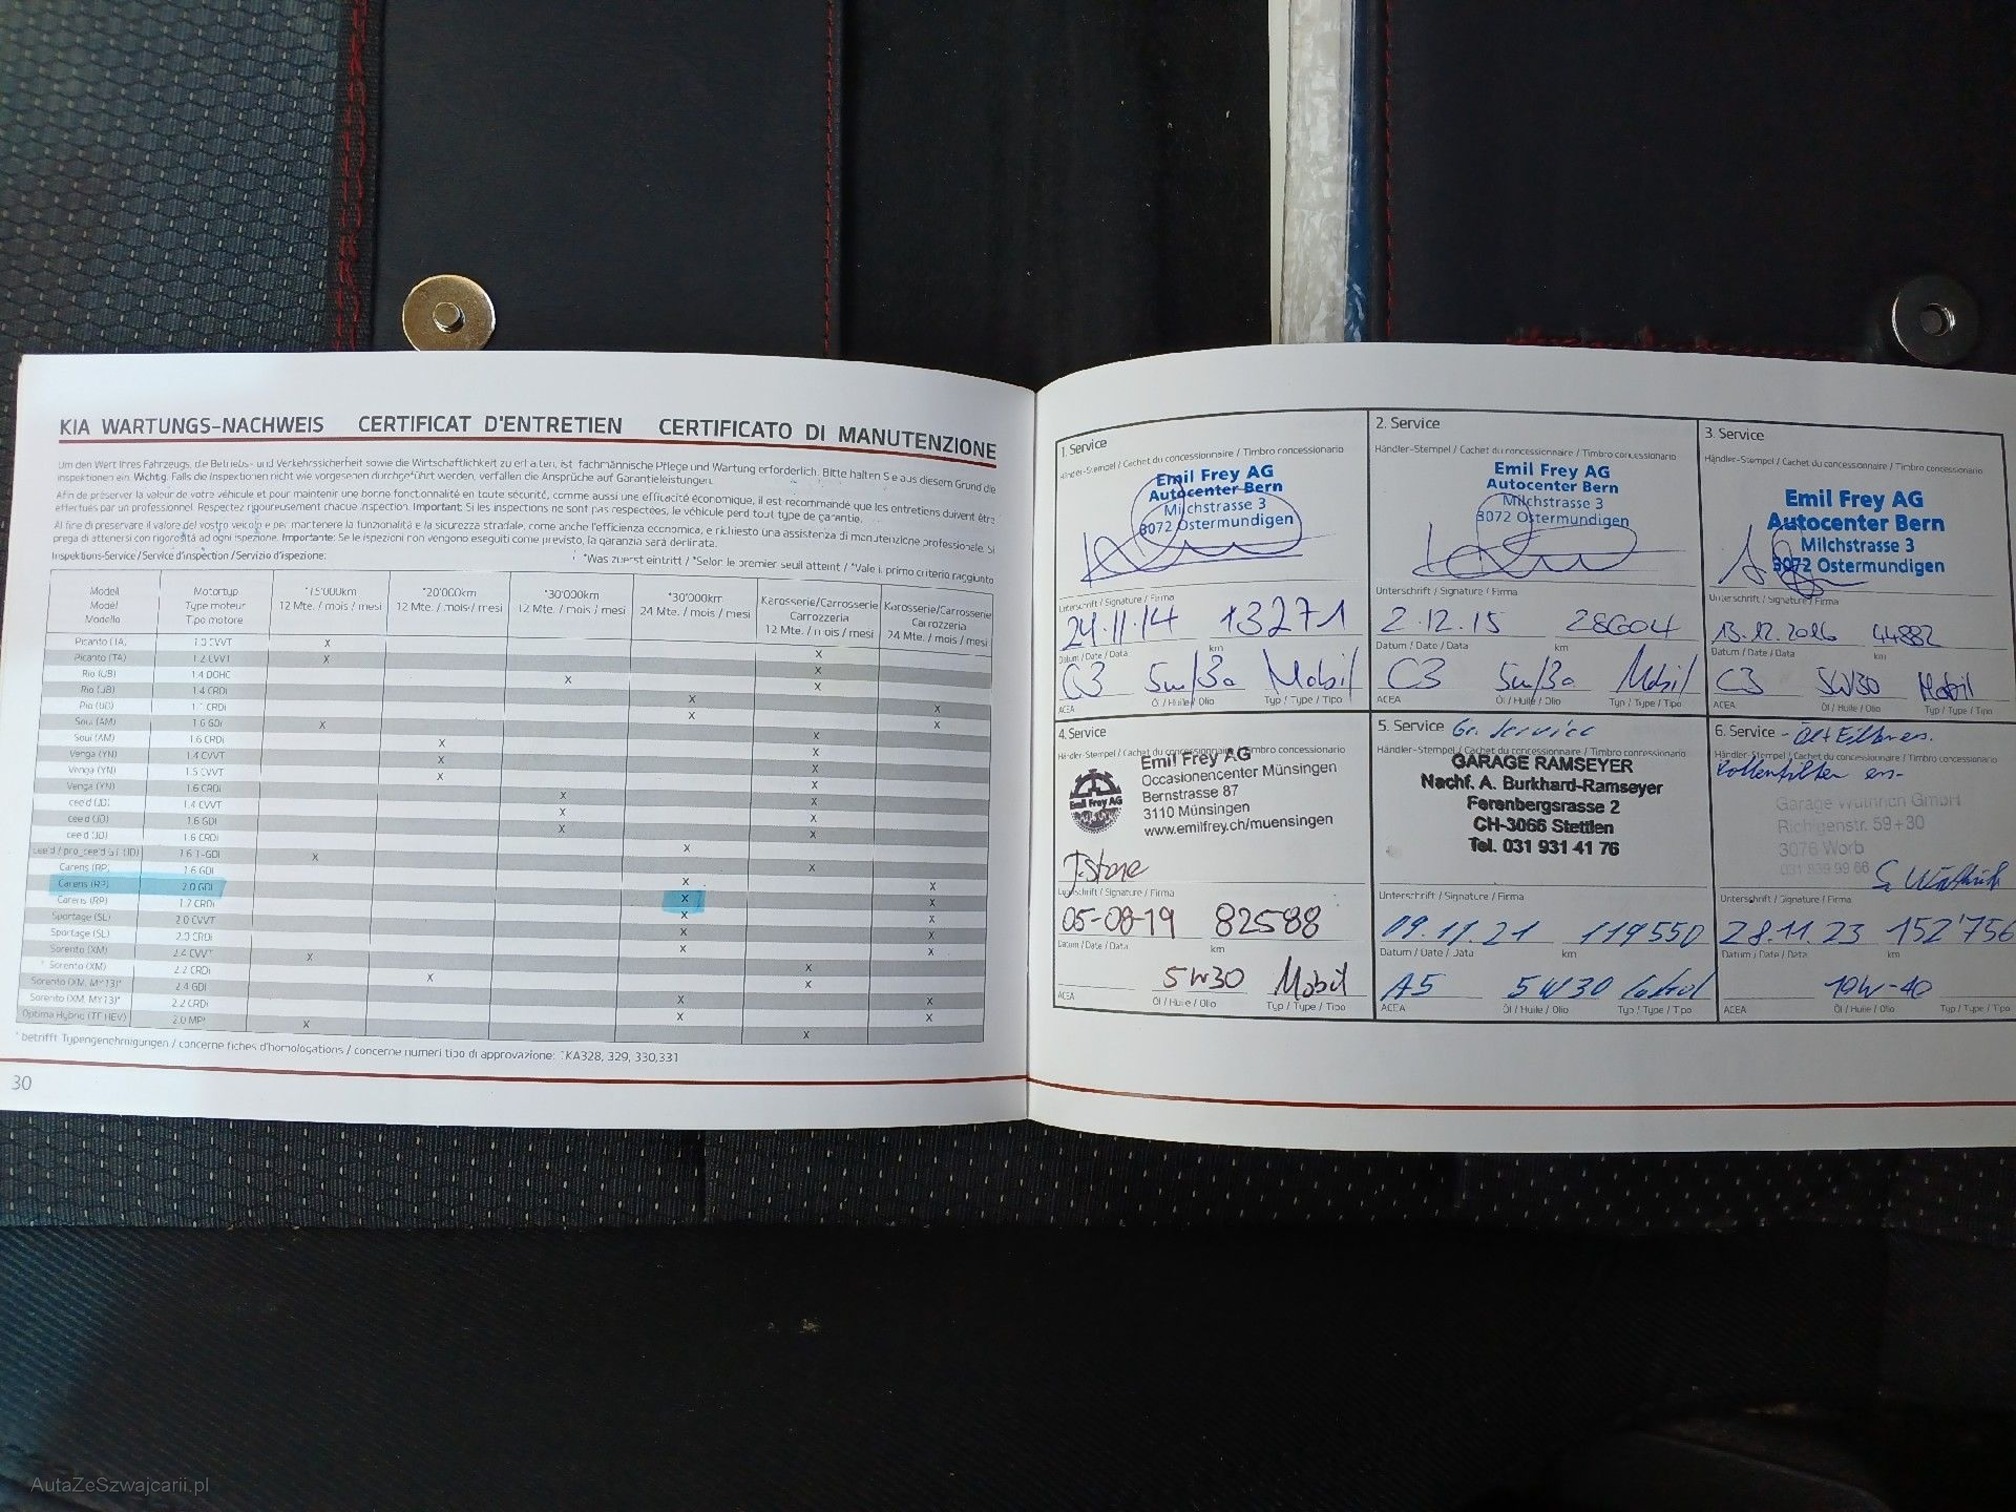 KIA WARTUNGS-NACHWEIS CERTIFICAT D'ENTRETIEN CERTIFICATO DI MANUTENZIONE
Um den Wert Ihres Fahrzeugs, die Betriebs- und Verkehrssicherheit sowie die Wirtschaftlichkeit zu erhalten, ist fachmännische Pflege und Wartung erforderlich. Bitte halten Sie aus diesem Grund die
Inspektionen ein. Wichtig: Falls die Inspektionen nicht wie vorgesehen durchgeführt werden, verfallen die Ansprüche auf Garantieleistungen.
Afin de préserver la valeur de votre véhicule et pour maintenir une bonne fonctionnalité en toute sécurité, comme aussi une efficacité économique, il est recommandé que les entretiens doivent être
effectués par un professionnel. Respectez rigoureusement chaque inspection. Important: Si les inspections ne sont pas respectées, le véhicule perd tout type de garantie.
Al fine di preservare il valore del vostro veicolo e per mantenere la funzionalità e la sicurezza stradale, come anche l'efficienza economica, è richiesto una assistenza di manutenzione professionale. Si
prega di attenersi con rigorosità ad ogni ispezione. Importante: Se le ispezioni non vengono eseguiti come previsto, la garanzia sarà declinata.
Inspektions-Service / Service d'inspection / Servizio d'ispezione: *Was zuerst eintritt / *Selon le premier seuil atteint / *Vale il primo criterio raggiunto
Modell Motortyp *15'000km *20'000km *30'000km *30'000km Karosserie/Carrosserie Karosserie/Carrosserie
Model Type moteur 12 Mte. / mois / mesi 12 Mte. / mois / mesi 12 Mte. / mois / mesi 24 Mte. / mois / mesi Carrozzeria Carrozzeria
Modello Tipo motore 12 Mte. / mois / mesi 24 Mte. / mois / mesi
Picanto (TA) 1.0 CVVT X
Picanto (TA) 1.2 CVVT X X
Rio (UB) 1.4 DOHC X X
Rio (UB) 1.4 CRDi X X
Rio (UB) 1.1 CRDi X X
Soul (AM) 1.6 GDI X X X
Soul (AM) 1.6 CRDi X X
Venga (YN) 1.4 CVVT X X
Venga (YN) 1.6 CVVT X X
Venga (YN) 1.6 CRDi X
cee'd (JD) 1.4 CVVT X X
cee'd (JD) 1.6 GDI X X
cee'd (JD) 1.6 CRDi X X
cee'd / pro_cee'd GT (JD) 1.6 T-GDI X X
Carens (RP) 1.6 GDI X
Carens (RP) 2.0 GDI X X
Carens (RP) 1.7 CRDi X X
Sportage (SL) 2.0 CVVT X X
Sportage (SL) 2.0 CRDi X X
Sorento (XM) 2.4 CVVT X X X
* Sorento (XM) 2.2 CRDi X
Sorento (XM, MY13)* 2.4 GDI X X
Sorento (XM, MY13)* 2.2 CRDi X X
Optima Hybrid (TF HEV) 2.0 MPI X X X
X
* betrifft Typengenehmigungen / concerne fiches d'homologations / concerne numeri tipo di approvazione: *KA328, 329, 330,331
30
1. Service
Händler-Stempel / Cachet du concessionnaire / Timbro concessionario
Emil Frey AG
Autocenter Bern
Milchstrasse 3
3072 Ostermundigen
Unterschrift / Signature / Firma
24.11.14 13271
Datum / Date / Data km
C3 5w/30 Mobil
ACEA Öl / Huile / Olio Typ / Type / Tipo
2. Service
Händler-Stempel / Cachet du concessionnaire / Timbro concessionario
Emil Frey AG
Autocenter Bern
Milchstrasse 3
3072 Ostermundigen
Unterschrift / Signature / Firma
2.12.15 28604
Datum / Date / Data km
C3 5w/30 Mobil
ACEA Öl / Huile / Olio Typ / Type / Tipo
3. Service
Händler-Stempel / Cachet du concessionnaire / Timbro concessionario
Emil Frey AG
Autocenter Bern
Milchstrasse 3
3072 Ostermundigen
Unterschrift / Signature / Firma
13.12.2016 44882
Datum / Date / Data km
C3 5W30 Mobil
ACEA Öl / Huile / Olio Typ / Type / Tipo
4. Service
Händler-Stempel / Cachet du concessionnaire / Timbro concessionario
Emil Frey AG
Occasionencenter Münsingen
Bernstrasse 87
3110 Münsingen
www.emilfrey.ch/muensingen
Emil Frey AG
Unterschrift / Signature / Firma
05-08-19 82588
Datum / Date / Data km
5W30 Mobil
ACEA Öl / Huile / Olio Typ / Type / Tipo
5. Service Gr. Service
Händler-Stempel / Cachet du concessionnaire / Timbro concessionario
GARAGE RAMSEYER
Nachf. A. Burkhard-Ramseyer
Ferenbergsrasse 2
CH-3066 Stettlen
Tel. 031 931 41 76
Unterschrift / Signature / Firma
09.11.21 119550
Datum / Date / Data km
A5 5W30 Castrol
ACEA Öl / Huile / Olio Typ / Type / Tipo
6. Service - Öl+Filter en.
Händler-Stempel / Cachet du concessionnaire / Timbro concessionario
Pollenfilter en-
Garage Wüthrich GmbH
Richigenstr. 59+30
3076 Worb
031 839 99 66
S. Wüthrich
Unterschrift / Signature / Firma
28.11.23 152'756
Datum / Date / Data km
10W-40
ACEA Öl / Huile / Olio Typ / Type / Tipo
AutaZeSzwajcarii.pl